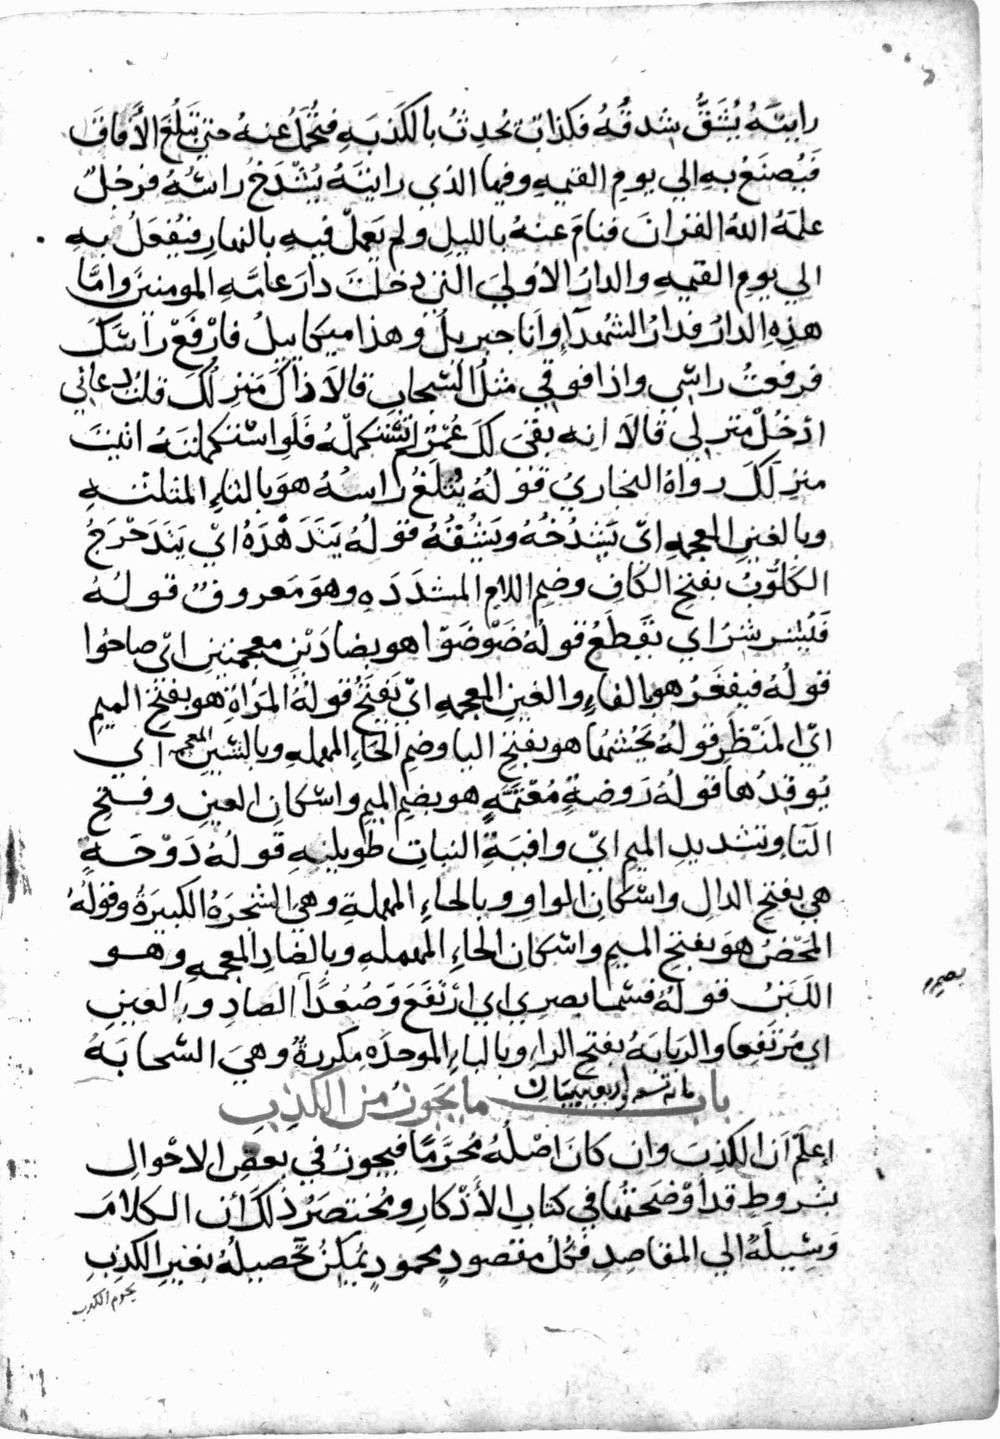 رايتَهُ يُشَقُّ شِدقُهُ فكذابٌ يُحدِثُ بالكَذبَهِ فتُحْمَلُ عنهُ حتي تَبلُغَ الأفاقَ
فيُصنَعُ بهِ الي يومِ القيمهِ وفيها الذي رايتَهُ يُشْدَخُ راسُهُ فرجُلٌ
علمَهُ اللهُ القرانَ فنامَ عنهُ بالليلِ ولم يَعملْ فيهِ بالنهارِ فيُفعَلُ بهِ
الي يومِ القيمهِ والدارُ الأوليَ التي دخلتَ دارُ عامَّهِ المومنينَ وامَّا
هذِهِ الدارُ فدارُ الشهدآءِ وانا جبريلُ وهذا ميكاييلُ فارْفَعْ راسَكَ
فرفعتُ راسي واذا فوقي مثلُ السَّحابِ قالَا ذاكَ منزلُكَ قلتُ دعاني
ادخُلْ منزلي قالَا انه بقيَ لكَ عُمْرٌ لم تَسْتكمِلْهُ فلَوِ اسْتكملتَهُ اتيتَ
منزلَكَ رواهُ البخاريُ قولُهُ يُثلَغُ راسُهُ هوَ بالثاءِ المثلثهِ
وبالغينِ المعجمهِ ايْ يَشدَخُهُ ويَشُقُهُ قولُهُ يَتَدَهْدَهُ ايْ يَتَدَحْرَجُ
الكَلُّوبُ بفتحِ الكافِ وضمِ اللامِ المشددَهِ وهوَ مَعروفٌ قولُهُ
فيُشرشَرُ اي يقَطَعُ قولُهُ ضَوْضَوْا هو بضادَيْنِ معجمتينِ ايْ صاحُوا
قولُهُ فيفغَرُ هو بالفاءِ والغينِ المعجمهِ ايْ يَفتَحُ قولُهُ المَرْآةِ هو بفتحِ الميمِ
ايِ المَنْظَرِ قولُهُ يَحُشُّها هو بفتحِ اليا وضمِ الحاءِ المهملهِ وبالشينِ المعجمه اي
يُوقِدُها قولُهُ رَوضةٍ مُعْتمَّةٍ هو بضمِ الميمِ واسْكانِ العينِ وفتحِ
التاءِ وتشديدِ الميمِ ايْ وافيَةِ النباتِ طويلتِهِ قولُهُ دَوْحَةٍ
هي بفتحِ الدالِ واسْكانِ الواو وبالحاءِ المهملةِ وهي الشجرَةُ الكبيرَةُ وقولُهُ
المَحْضُ هوَ بفتحِ الميمِ واسْكانِ الحاءِ المهملهِ وبالضادِ المعجمهِ وهو
اللبَنُ قولُهُ فسَما بصري ايِ ارْتفَعَ وَصُعُدًا بضم الصادِ والعينِ
اي مُرتَفِعا والرَبابَهُ بفتحِ الراءِ وبالباءِ الموحدَهِ مكررةٌ وهيَ السَّحابَهُ
باب مايَجُوزُ منَ الكَذِبِ
إعلَمْ أنَّ الكَذِبَ وان كانَ اصْلُهُ مُحَرَّمًا فيجوزُ في بعضِ الاحْوالِ
بشروطٍ قد أوْضَحتُها في كتابِ الأذْكارِ ومُختصَرُ ذلكَ أن الكلامَ
وَسِيلَهٌ الي المقاصِدِ فكُلُ مقصودٍ محمودٍ يُمكِنُ تحصيلُهُ بغيرِ الكذِبِ
يحرم الكذب